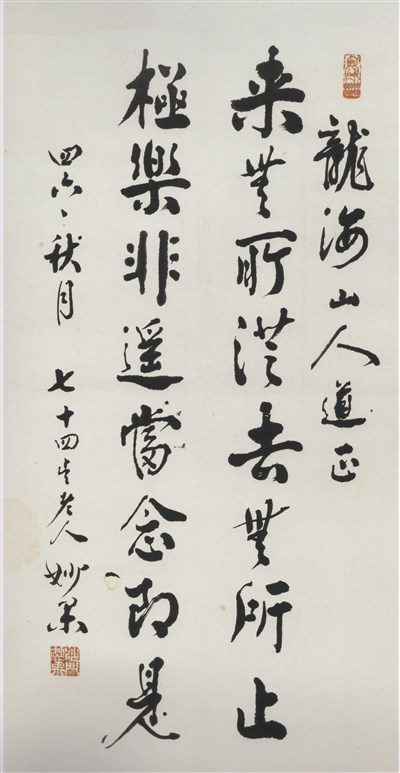 龍海山人道正
来無所從去無所止
極樂非遥當念即是
四六、秋月 七十四歲老人 妙果